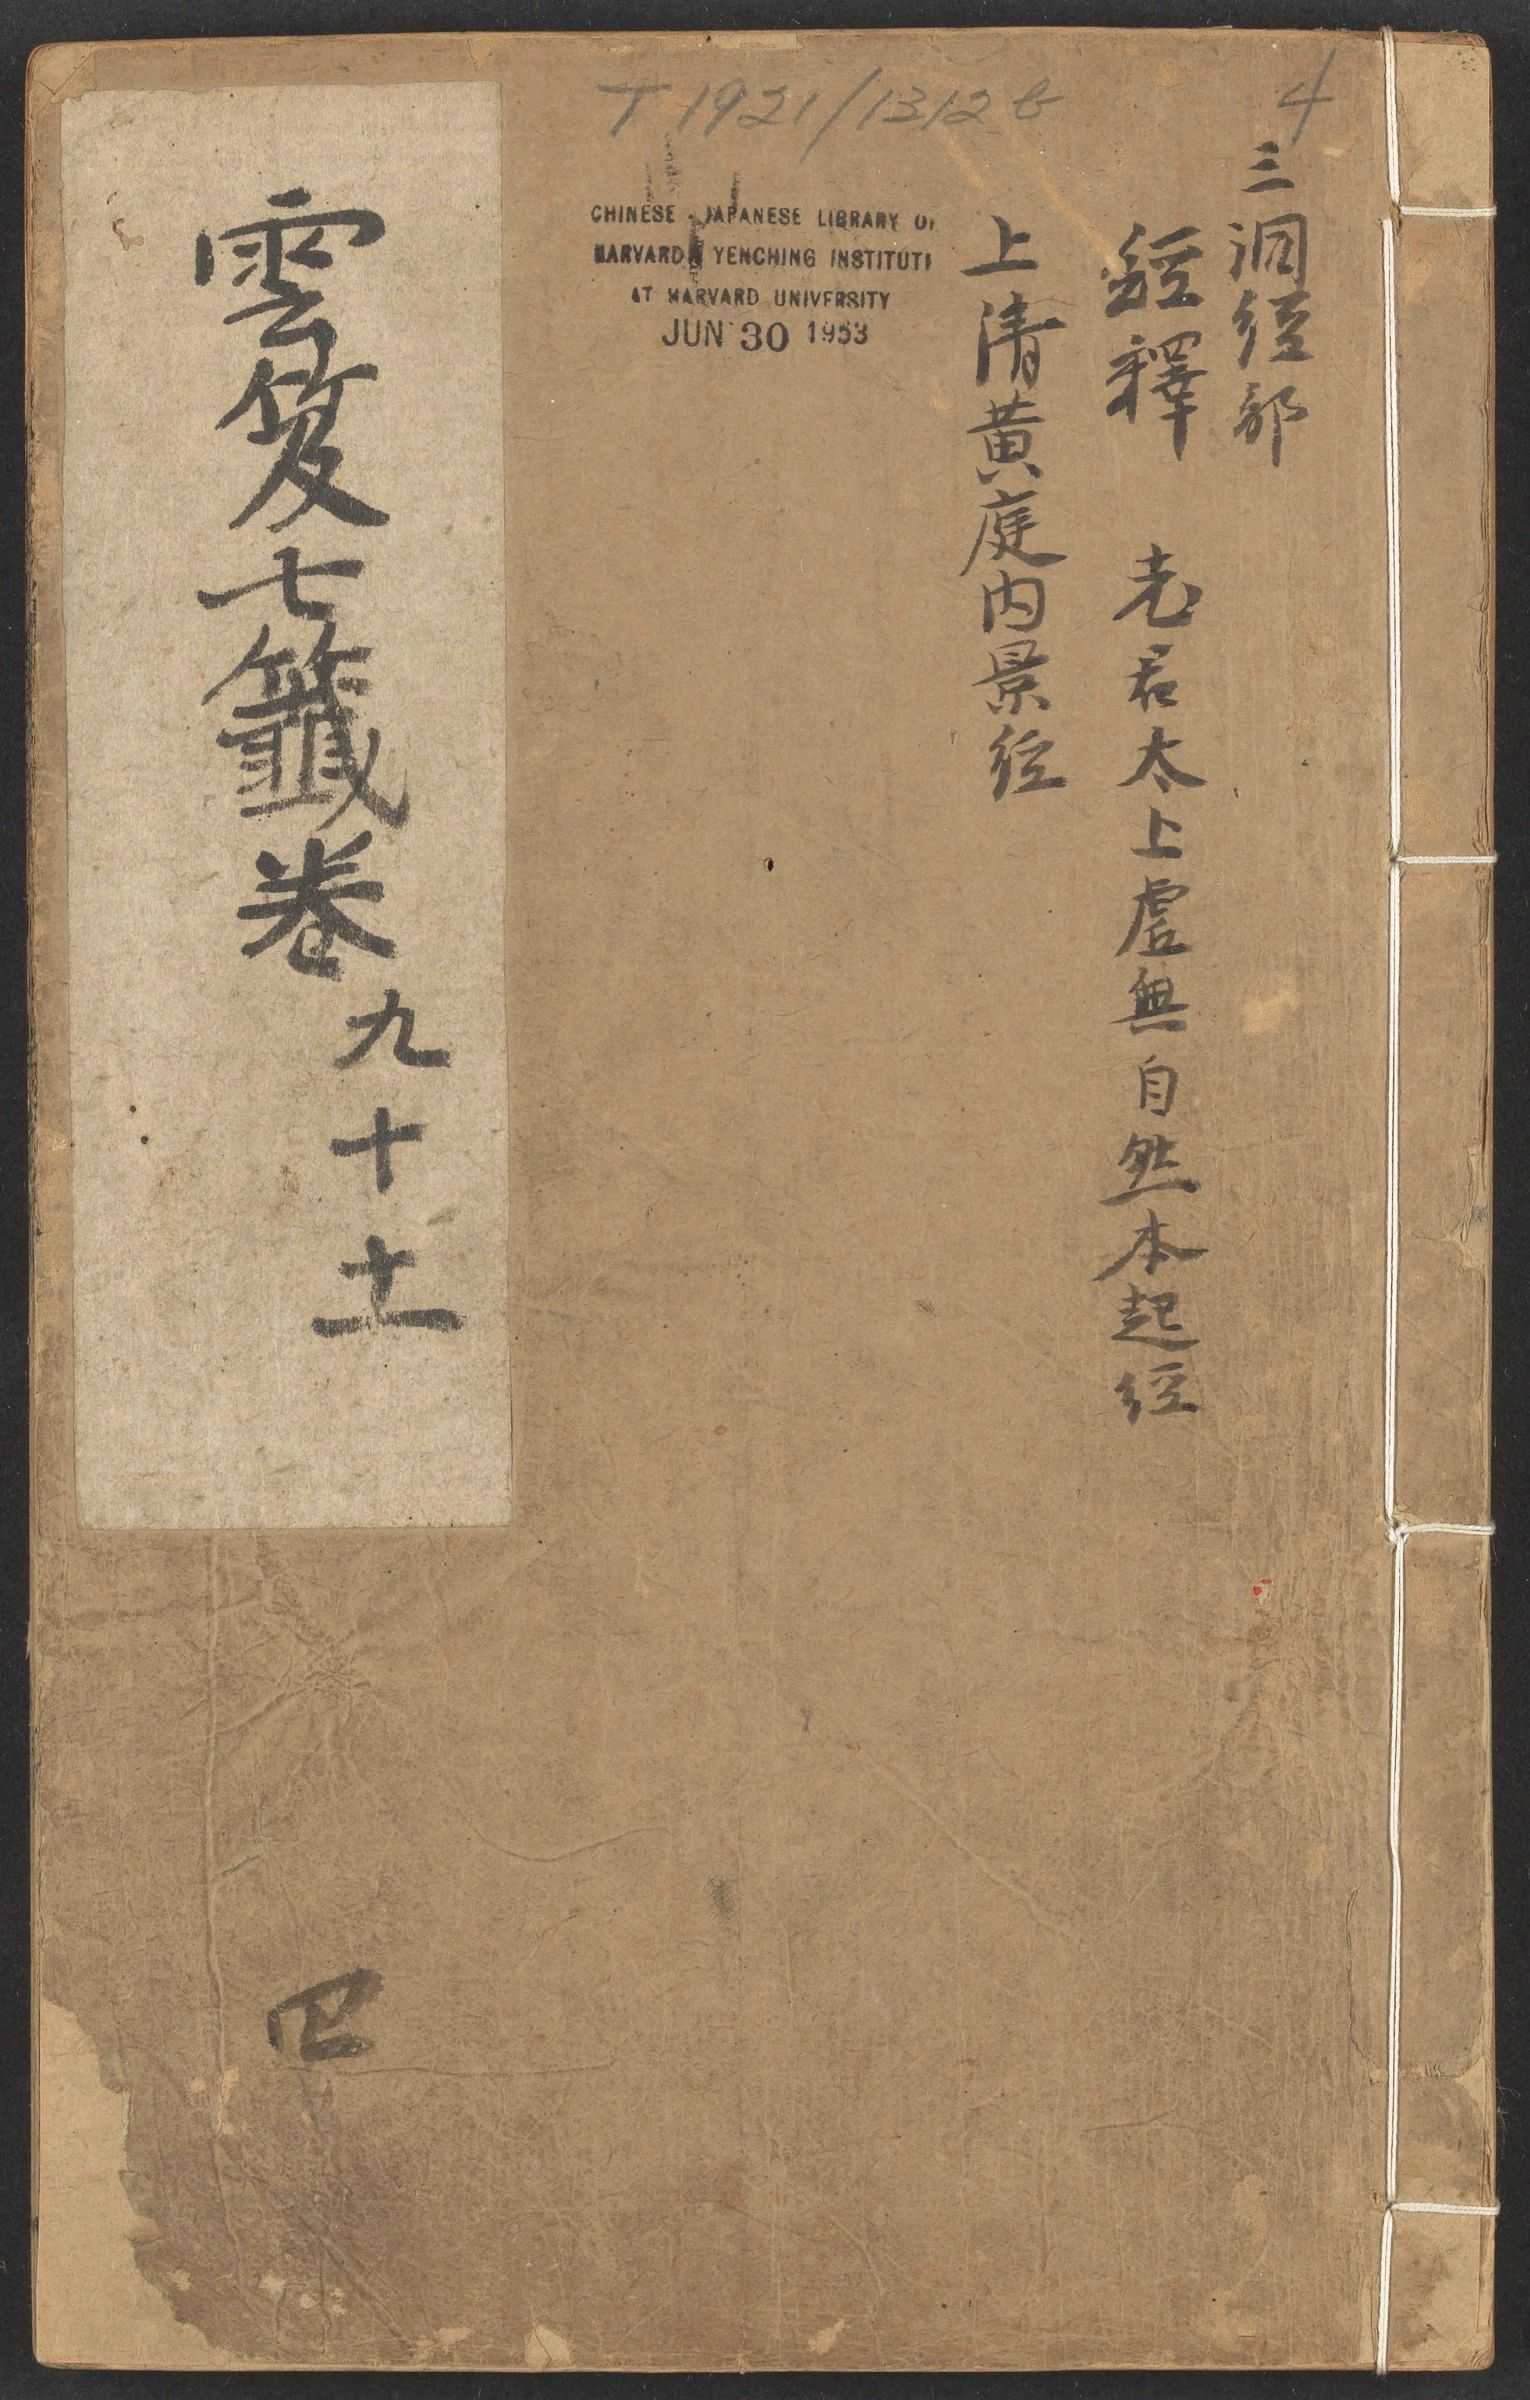 T 1921/1312 b
4
CHINESE - JAPANESE LIBRARY OF
HARVARD YENCHING INSTITUTE
AT HARVARD UNIVERSITY
JUN 30 1953
三洞經部
經釋 老君太上虛無自然本起經
上清黄庭内景經
雲笈七籤卷九十十一
四